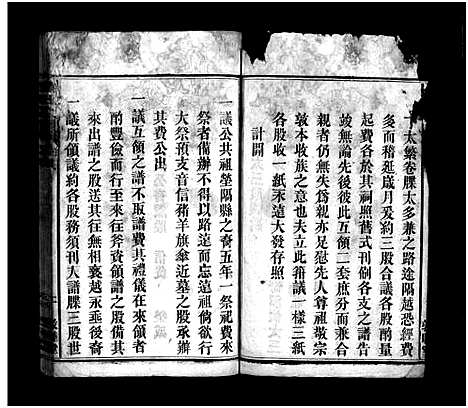 十太繁卷牒太多兼之路途隔越恐經費
多而稽逛歲月爰約三股合議各股酌量
起費各於其祠照舊式刊刷各支之譜告
竣無論先後彼此互領二套庶分而兼合
親者仍無失為親亦足慰先人尊祖敬宗
敦本收族之意也夫立此籍議一樣三紙
各股收一紙永遠大發存照
計開
一議公共祖塋隔縣之裔五年一祭祀費來
祭者備辦不得以路遠而忘這祖倘欲行
大祭預支音信豬羊旗傘近墓之股承辦
其費公出
一議互領之譜不取譜費其禮儀在來領者
酌豐儉而行至來往斧資領譜之股備其
來出譜之股送其往無相褻越永垂後裔
一議所領議約各股務須刊入譜牒三股世